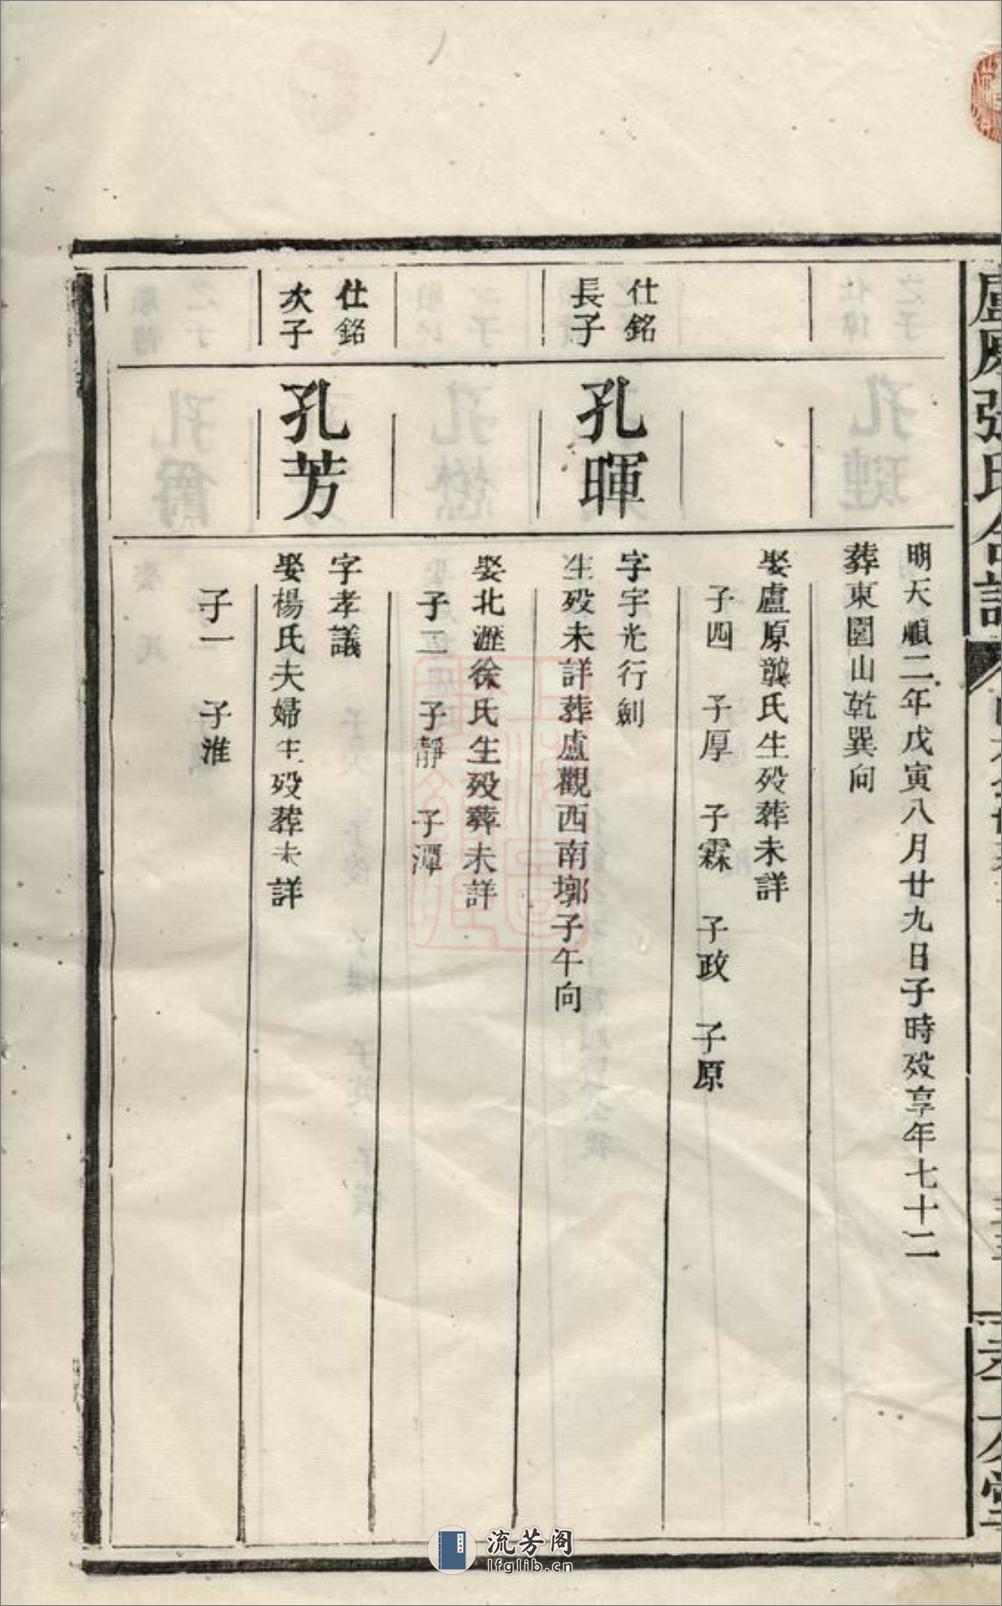 明天順二年戊寅八月廿九日子時歿享年七十二
葬東園山乾巽向
娶盧原龔氏生歿葬未詳
子四 子厚 子霖 子政 子原
仕銘
長子
孔暉
字宇光行劍
生歿未詳葬盧觀西南墎子午向
娶北瀝徐氏生歿葬未詳
子二 子靜 子潭
仕銘
次子
孔芳
字孝議
娶楊氏夫婦生歿葬未詳
子一 子淮
流芳阁
lfglib.cn